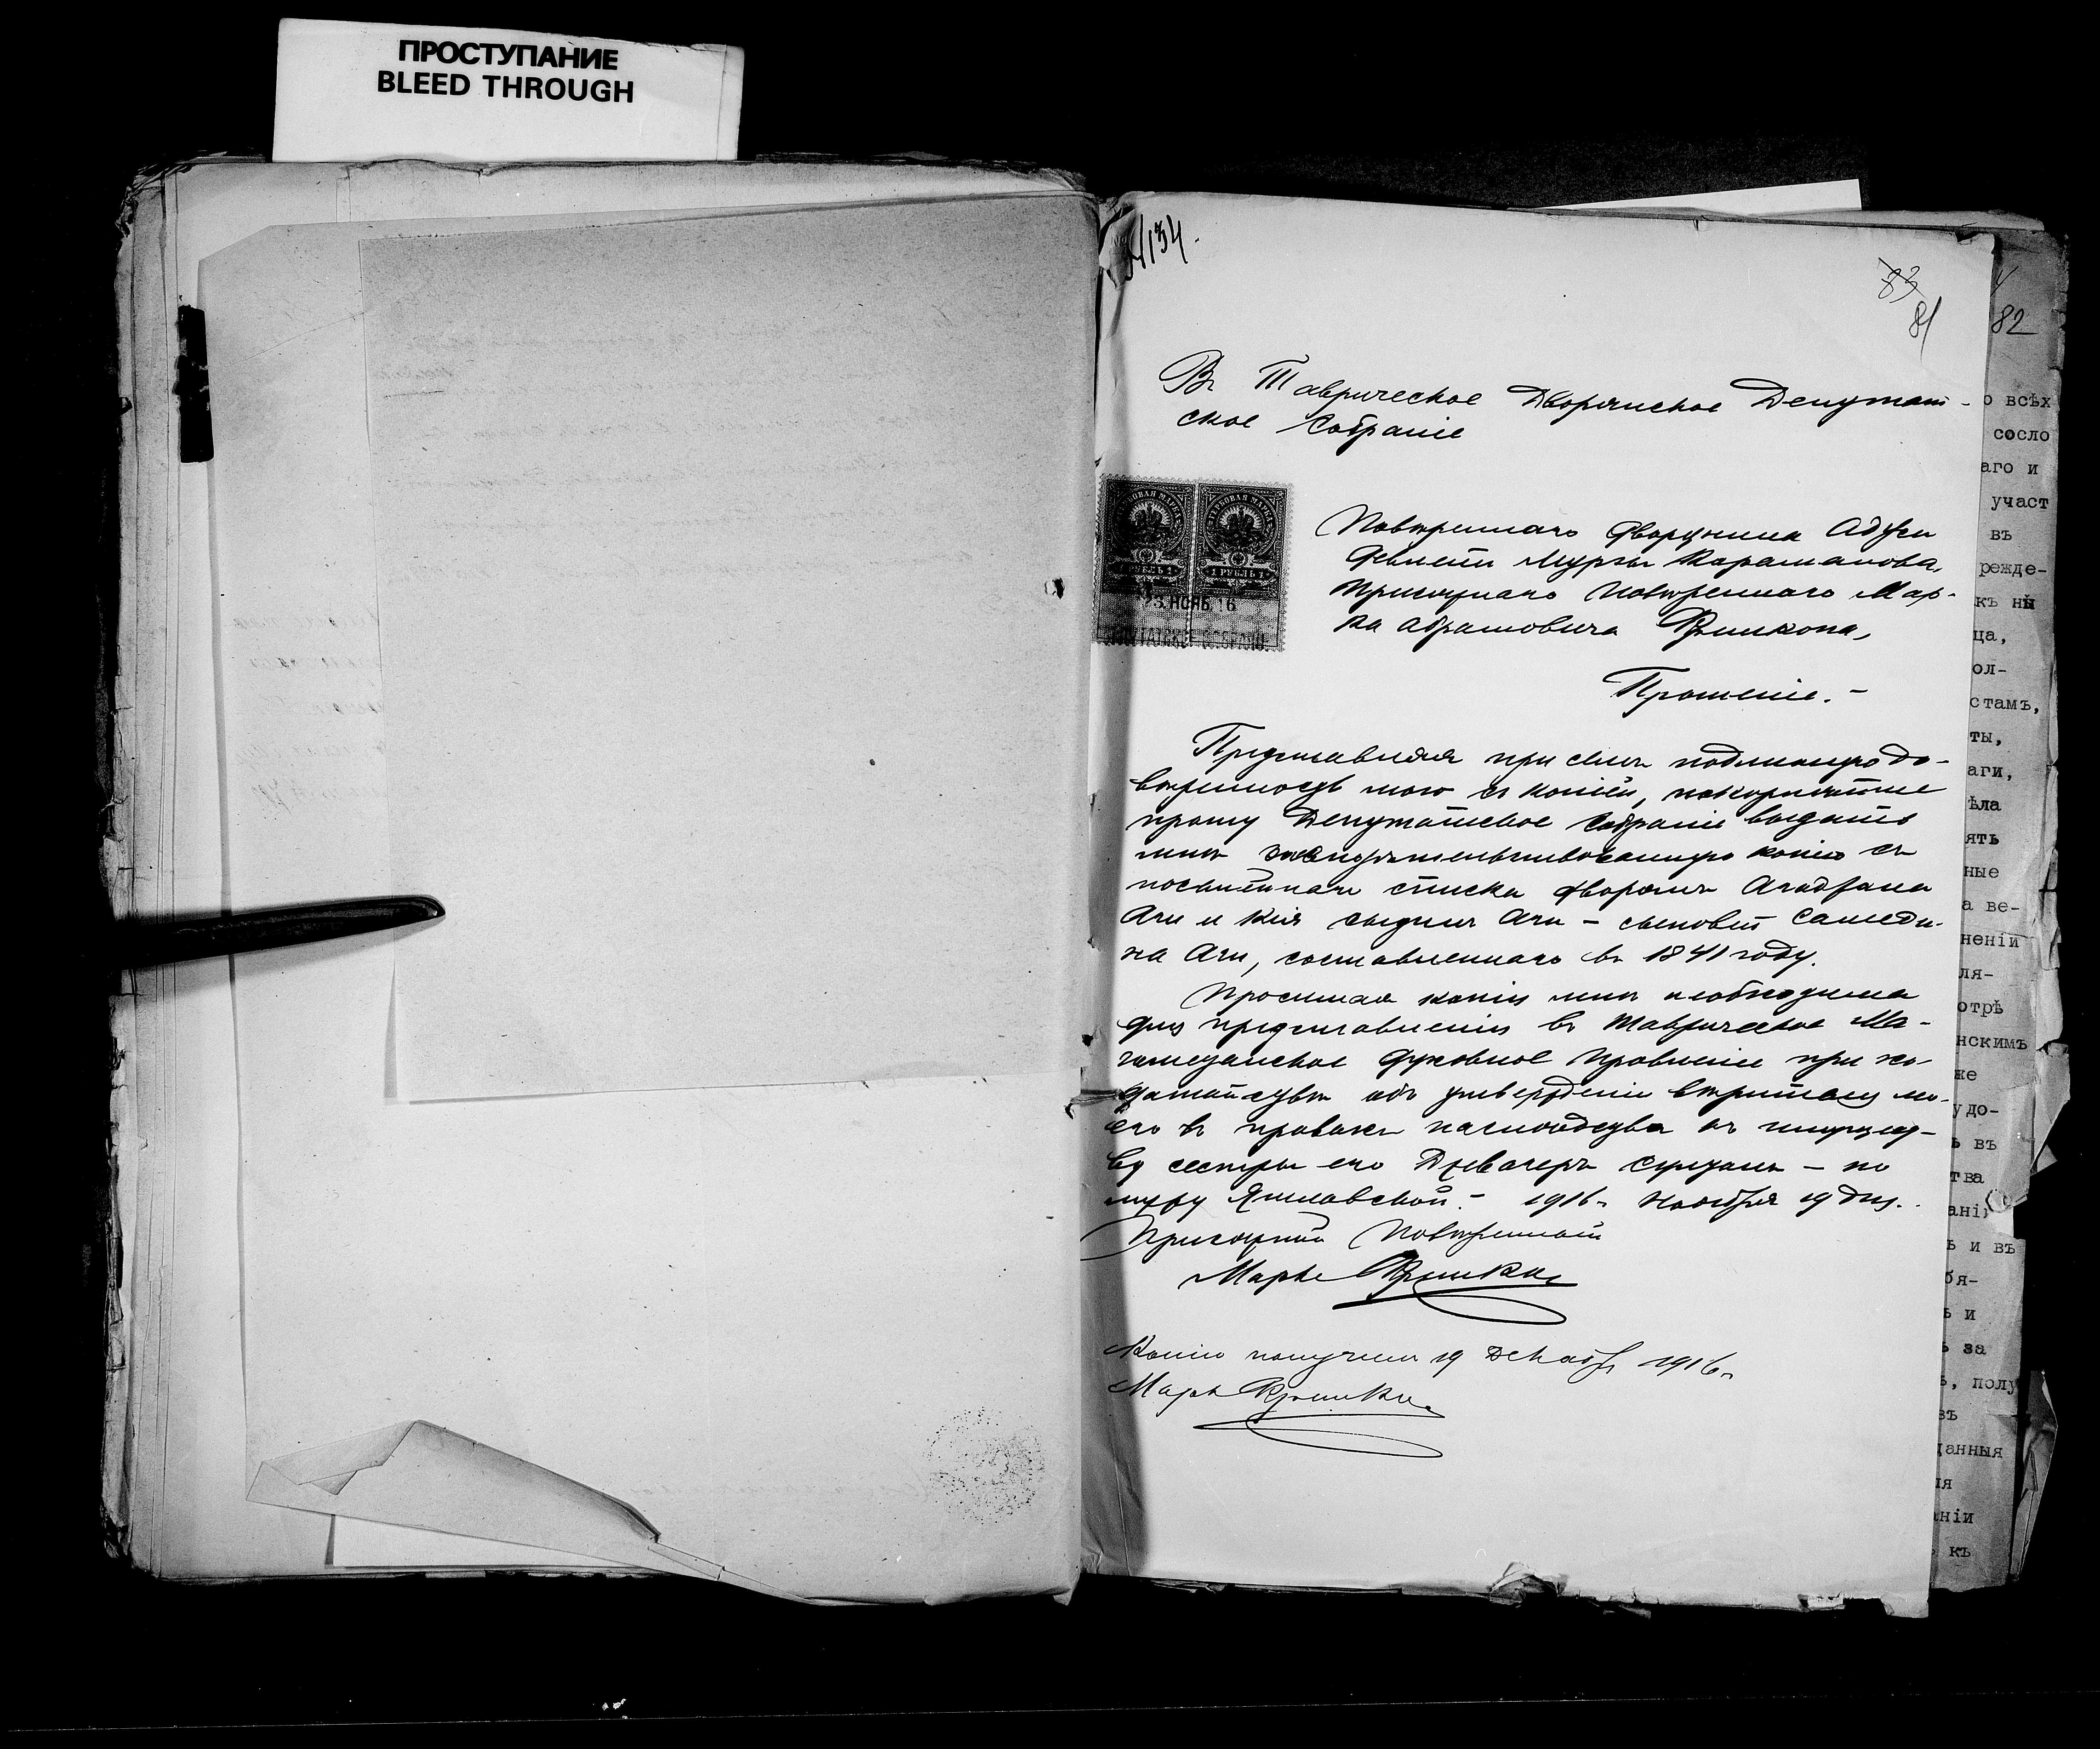 ПРОСТУПАНИЕ
BLEED THROUGH
134.
83
81
82
Въ Таврическое Дворянское Депутат-
ское Собраніе
ГЕРБОВАЯ МАРКА ГЕРБОВАЯ МАРКА
1 РУБЛЬ 1 1 РУБЛЬ 1
23 НОЯБ 16
ДЕПУТАТСКОЕ СОБРАНІЕ
Повѣреннаго дворянина
Девлетъ Мурзы Караманова,
Присяжнаго Повѣреннаго Мар-
ка Абрамовича
Прошеніе.-
Представляя при семъ подлинную до-
вѣренность мою съ копіей, покорнѣйше
прошу Депутатское Собраніе выдать
мнѣ засвидѣтельствованную копію съ
посемейнаго списка дворянъ
Аги и Аги - сыновей Самеди-
на Аги, составленнаго въ 1841 году.
Просимая копія мнѣ необходима
для представленія въ Таврическое Ма-
гометанское Духовное Правленіе при хо-
датайствѣ объ утвержденіи вѣрителя мо-
его въ правахъ наслѣдства къ имущест-
ву сестры его Султанъ - по
мужу Яшлавской.- 1916 г. Ноября 19 дня.
Присяжный Повѣренный
Маркъ
Копію получилъ 19 Декабр 1916 г.
Маркъ
о всѣх
сосло
аго и
участ
въ
режде-
къ ны
ца,
ол-
стамъ,
ты,
аги,
ѣла
ять
ные
а ве-
неніи
ля-
отрѣ
нскимъ
же
удо-
ь въ
тва
ані
ъ и въ
бя-
ь и
ь за
ъ, полу
въ
данныя
ія
аніи
къ